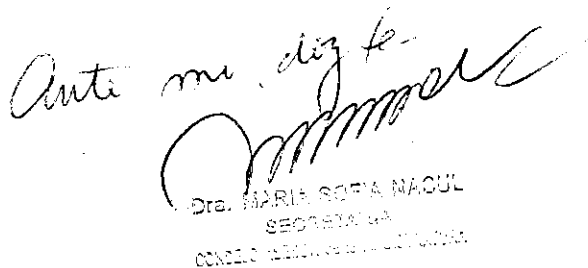 Ante mi, doy fe-
Dra. MARIA SOFIA NACUL
SECRETARIA